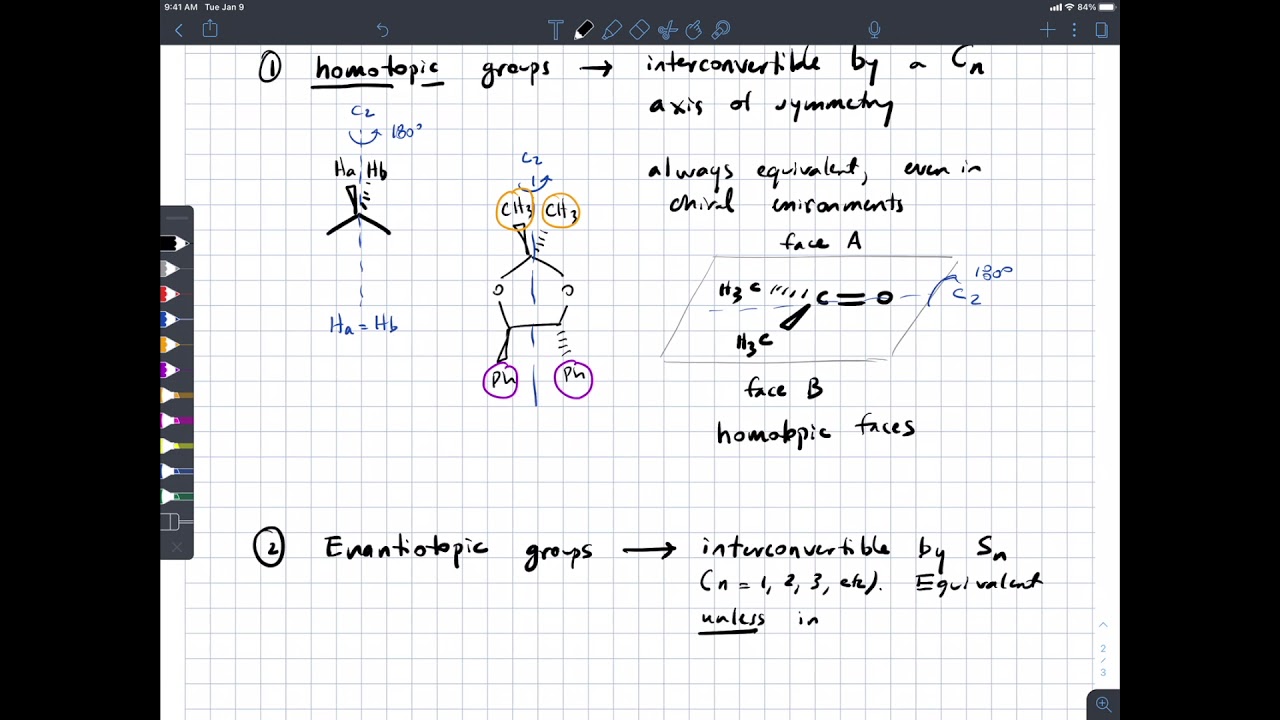 9:41 AM Tue Jan 9
84%
① homotopic groups → interconvertible by a Cn
axis of symmetry
C2
180°
Ha Hb
Ha = Hb
C2
CH3 CH3
O O
Ph Ph
always equivalent, even in
chiral enironments
face A
H3C C = O
H3C
180°
C2
face B
homotopic faces
② Enantiotopic groups → interconvertible by Sn
(n = 1, 2, 3, etc). Equivalent
unless in
2
/
3